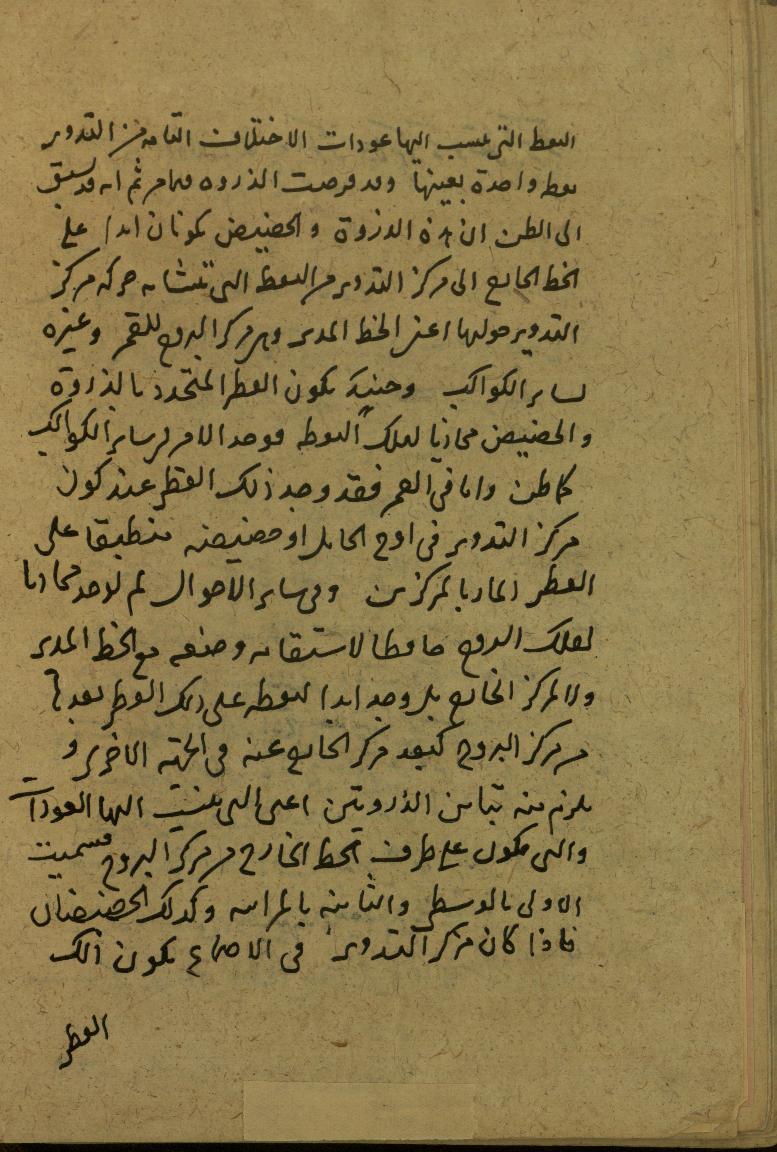 النقطة التى ينسب اليها عودات الاختلاف التامة من التدوير
نقطة واحدة بعينها وقد فرضت الذروة فيما مر ثم انه قد يسبق
الى الظن ان هذه الذروة والحضيض يكونان ابدا على
الخط الخارج الى مركز التدوير من النقطة التى تتشابه حركة مركز
التدوير حولها اعنى الخط المدير وهى مركز البروج للقمر وغيره
لسائر الكواكب وحينئذ يكون القطر المتحدد بالذروة
والحضيض محاذيا لتلك النقطة فوجد الامر لسائر الكواكب
كما ظن واما فى القمر فقد وجد ذلك القطر عند كون
مركز التدوير فى اوج الحامل او حضيضه منطبقا على
القطر المار بالمركزين وفى سائر الاحوال لم يوجد محاذيا
لفلك البروج حافظا لاستقامة وضعه مع الخط المدير
ولا لمركز الخارج بل وجد ابدا لنقطة على ذلك القطر بعدها
من مركز البروج كبعد مركز الخارج عنه فى الجهة الاخرى و
يلزم منه تباين الذروتين اعنى التى ينسب اليها العودات
والتى يكون على طرف الخط الخارج من مركز البروج فسميت
الاولى بالوسطى والثانية بالمرئية وكذلك الحضيضان
فاذا كان مركز التدوير فى الاجتماع يكون ذلك
القطر